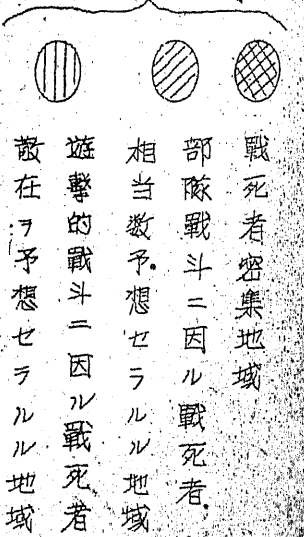 戰死者密集地域
部隊戰斗ニ因ル戰死者
相当数予想セラルル地域
遊撃的戰斗ニ因ル戰死者
散在ヲ予想セラルル地域